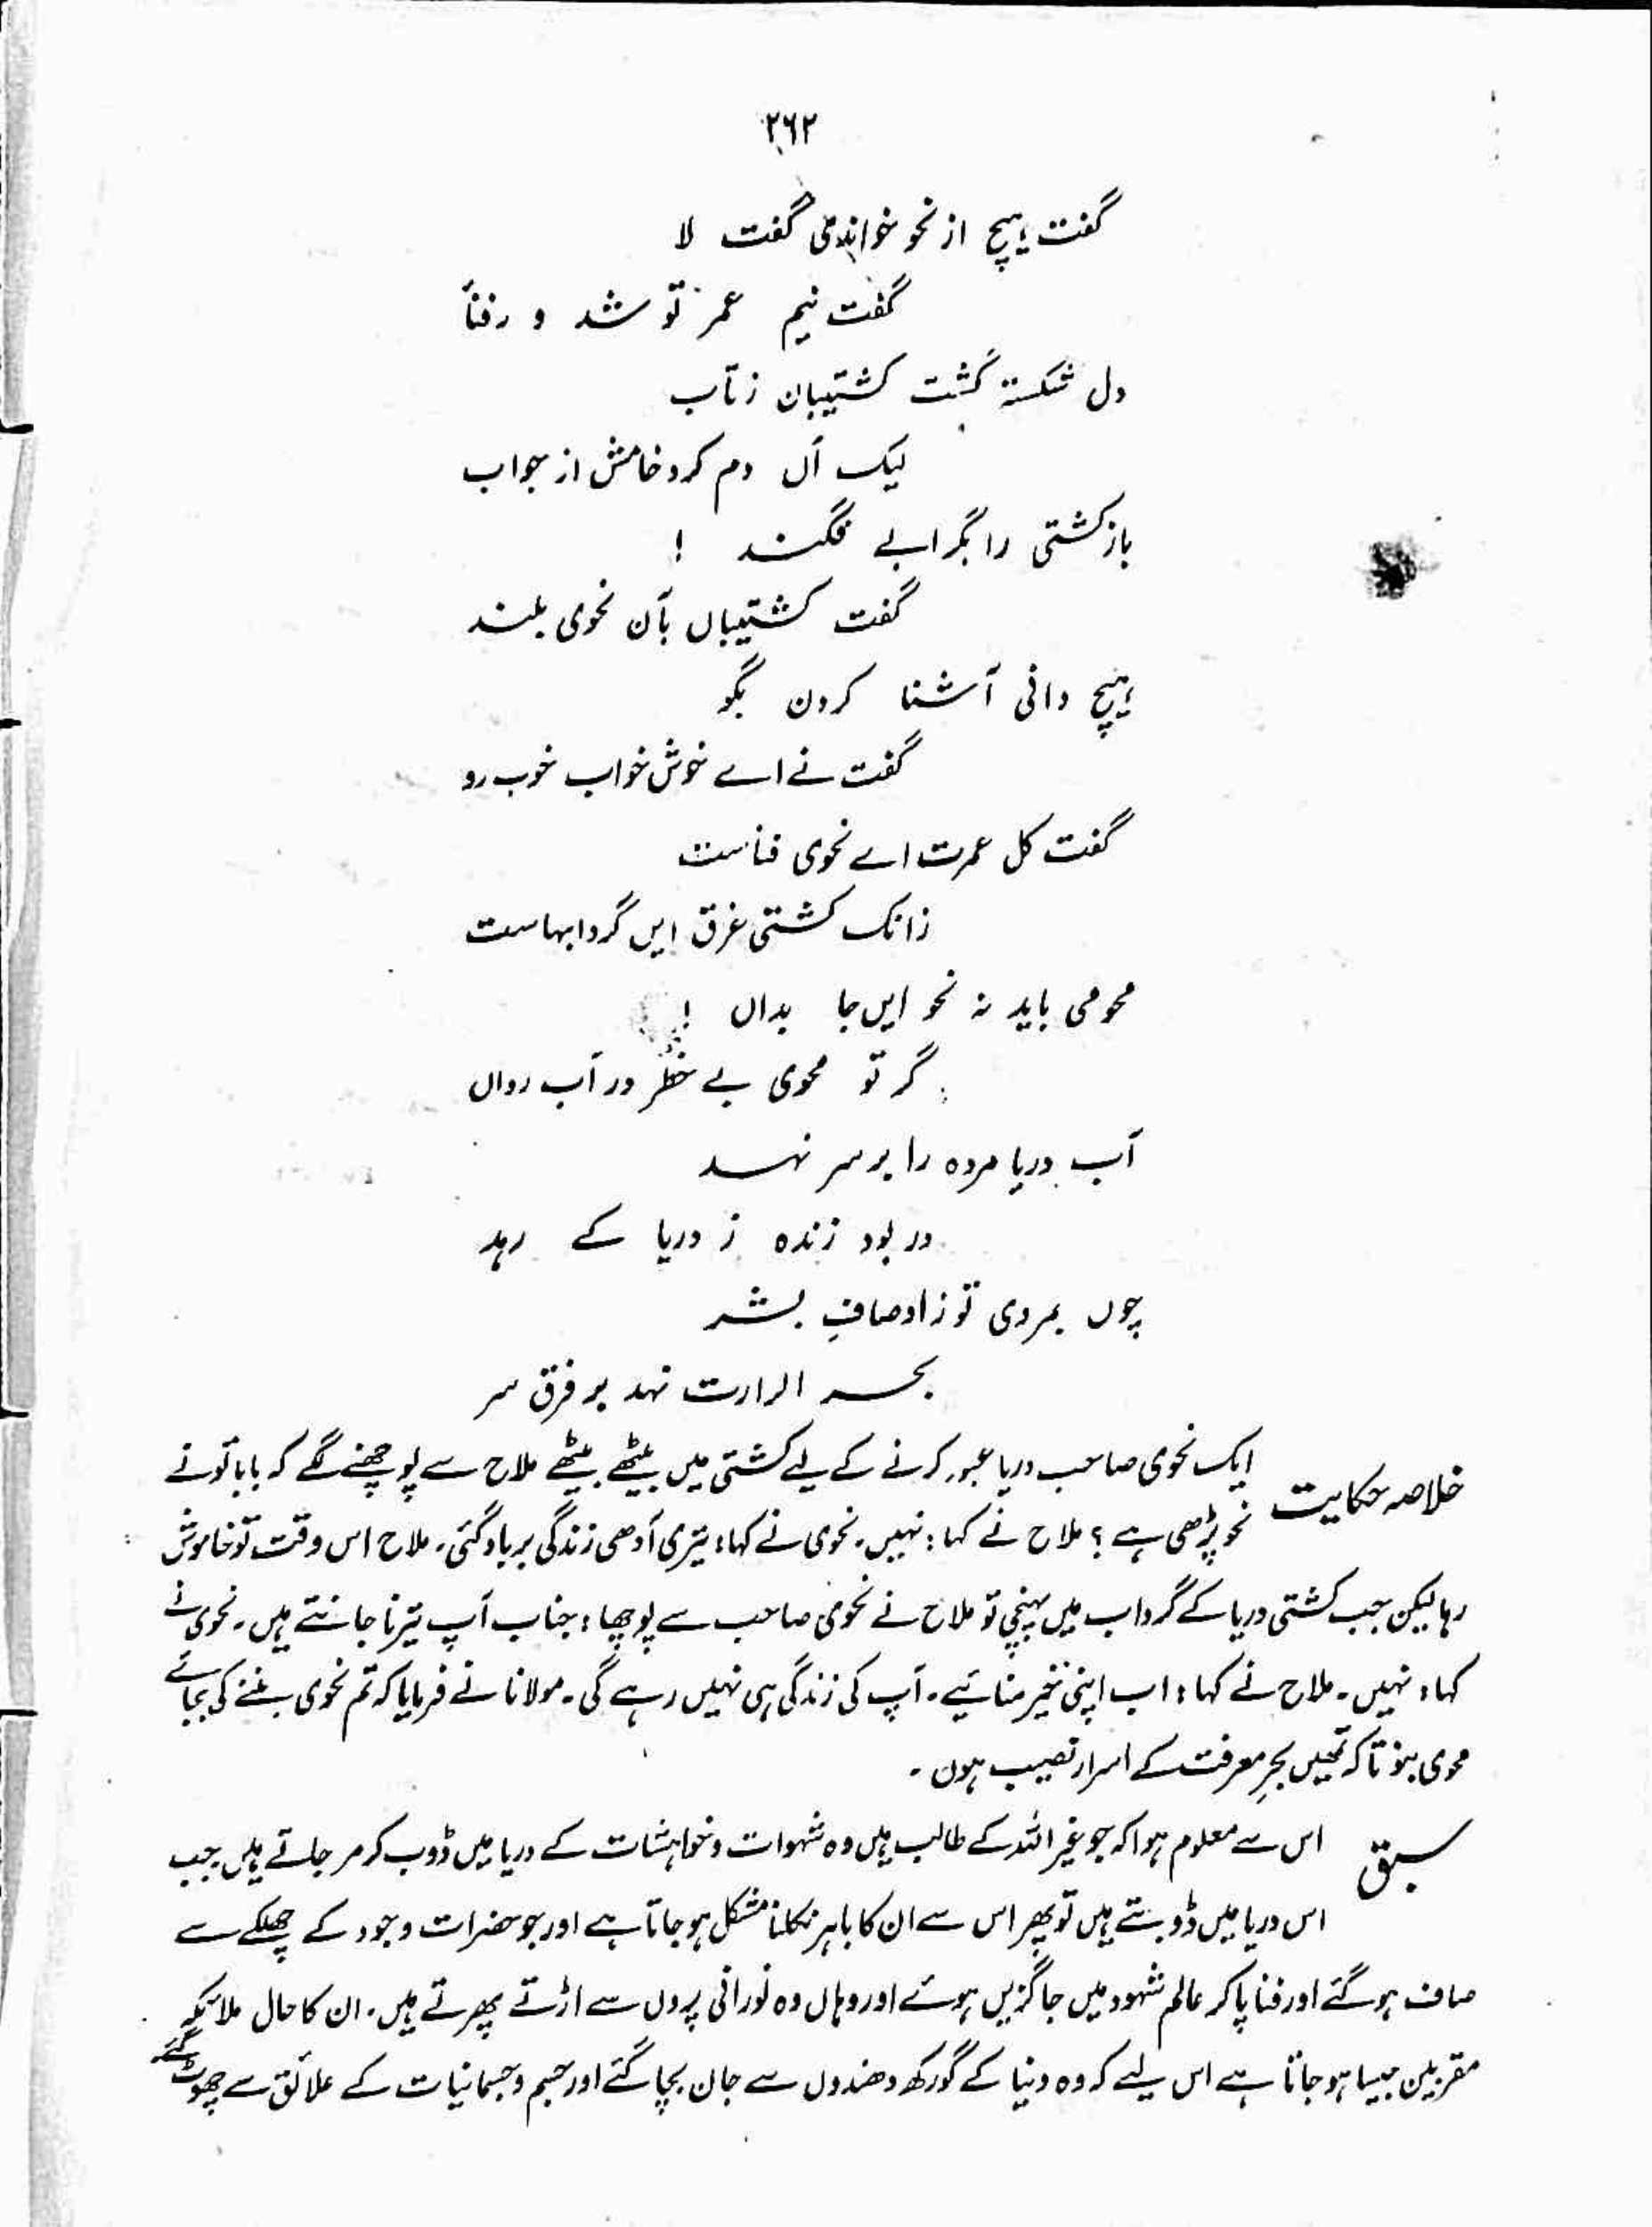 ۲۶۲
گفت ہیچ از نحو خواندی گفت لا
گفت نیم عمر تو شد و رفنآ
دل شکستہ گشت کشتیبان زتاب
لیک آں دم کرد خامش از جواب
باز کشتی را بگرابے فگند !
گفت کشتیباں بآن نحوی بلند
ہیچ دانی آشنا کردن بگو
گفت نے اے خوش خواب خوب رو
گفت کل عمرت اے نحوی فناست
زانک کشتی غرق ایں گردابہاست
محو می باید نہ نحو ایں جا بداں !
گر تو محوی بے خطر در آب رواں
آب دریا مردہ را بر سر نہد
ور بود زندہ ز دریا کے رہد
چوں بمردی تو ز اوصافِ بشر
بحر اسرارت نہد بر فرق سر
خلاصہ حکایت ایک نحوی صاحب دریا عبور کرنے کے لیے کشتی میں بیٹھے بیٹھے ملاح سے پوچھنے لگے کہ بابا تو نے
نحو پڑھی ہے ؟ ملاح نے کہا : نہیں ۔ نحوی نے کہا : تیری آدھی زندگی برباد گئی ۔ ملاح اس وقت تو خاموش
رہا لیکن جب کشتی دریا کے گرداب میں پہنچی تو ملاح نے نحوی صاحب سے پوچھا : جناب آپ تیرنا جانتے ہیں ۔ نحوی نے
کہا : نہیں ۔ ملاح نے کہا : اب اپنی خیر منائیے ۔ آپ کی زندگی ہی نہیں رہے گی ۔ مولانا نے فرمایا کہ تم نحوی بننے کی بجائے
محوی بنو تاکہ تمھیں بحرِ معرفت کے اسرار نصیب ہوں ۔
سبق اس سے معلوم ہوا کہ جو غیر اللہ کے طالب ہیں وہ شہوات و خواہشات کے دریا میں ڈوب کر مر جاتے ہیں جب
اس دریا میں ڈوبتے ہیں تو پھر اس سے ان کا باہر نکلنا مشکل ہو جاتا ہے اور جو حضرات وجود کے چھلکے سے
صاف ہو گئے اور فنا پا کر عالم شہود میں جاگزیں ہوئے اور وہاں وہ نورانی پروں سے اڑتے پھرتے ہیں ۔ ان کا حال ملائکہ
مقربین جیسا ہو جاتا ہے اس لیے کہ وہ دنیا کے گورکھ دھندوں سے جان بچا گئے اور جسم و جسمانیات کے علائق سے چھوٹ گئے